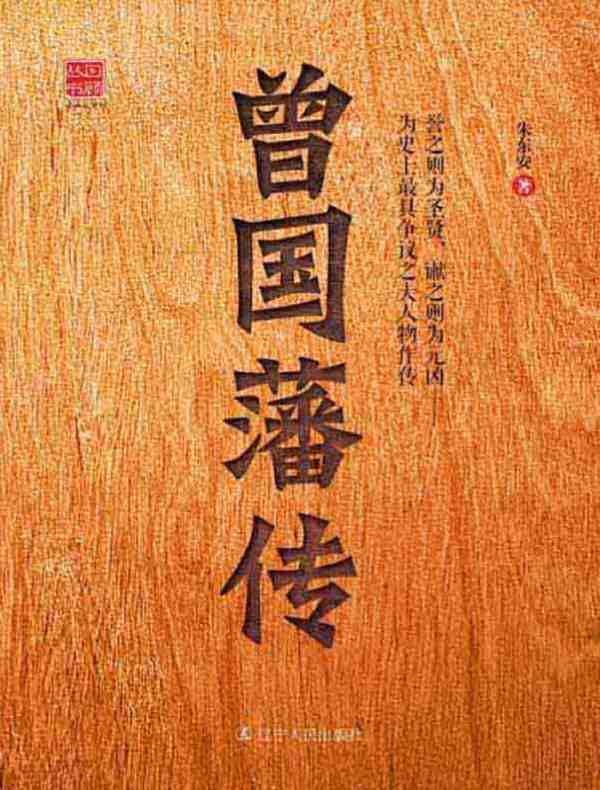 朱东安 著
誉之则为圣贤、谳之则为元凶——
为史上最具争议之大人物作传
曾国藩传
辽宁人民出版社